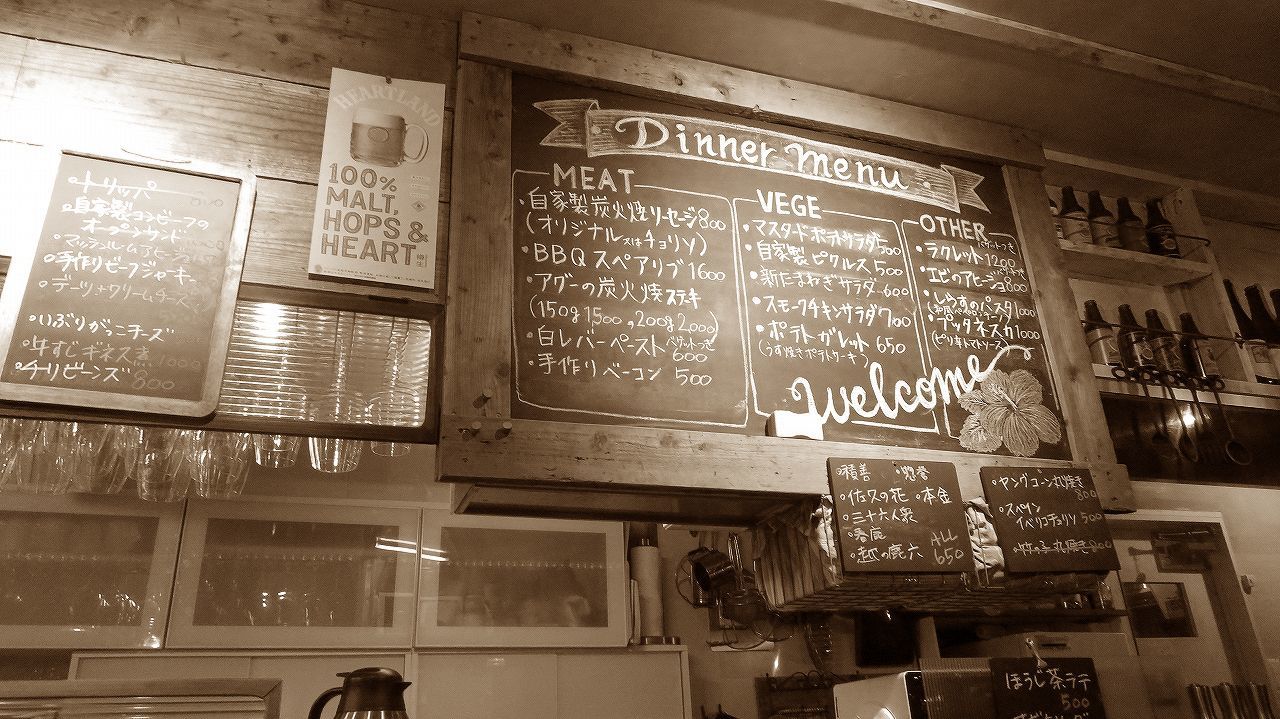 トリッパー
自家製コンビーフの
オープンサンド
マッシュルームアヒージョ
手作りビーフジャーキー
デーツ+クリームチーズ
いぶりがっこチーズ
牛すじギネス煮
チリビーンズ 800
HEARTLAND
100%
MALT,
HOPS &
HEART
Dinner menu
MEAT
・自家製炭火焼ソーセージ800
(オリジナル又はチョリソ)
・BBQ スペアリブ 1600
・アグーの炭火焼ステーキ
(150g 1500, 200g 2000)
・白レバーペースト バゲットつき
600
・手作りベーコン 500
VEGE
・マスタードポテトサラダ 500
・自家製ピクルス 500
・新たまねぎサラダ 600
・スモークチキンサラダ 700
・ポテトガレット 650
(うす焼きポテトケーキ)
OTHER
・ラクレット 1200
・エビのアヒージョ 800
・しらすのパスタ 1000
・プッタネスカ 1000
(ピリ辛トマトソース)
welcome
・積善 ・惣誉
・佐久の花 ・本金
・三十六人衆
・春鹿
・越の鹿六
ALL
650
・ヤングコーン丸焼き
800
・スペイン
イベリコチョリソ 500
・竹の子丸焼き 800
ほうじ茶ラテ
500